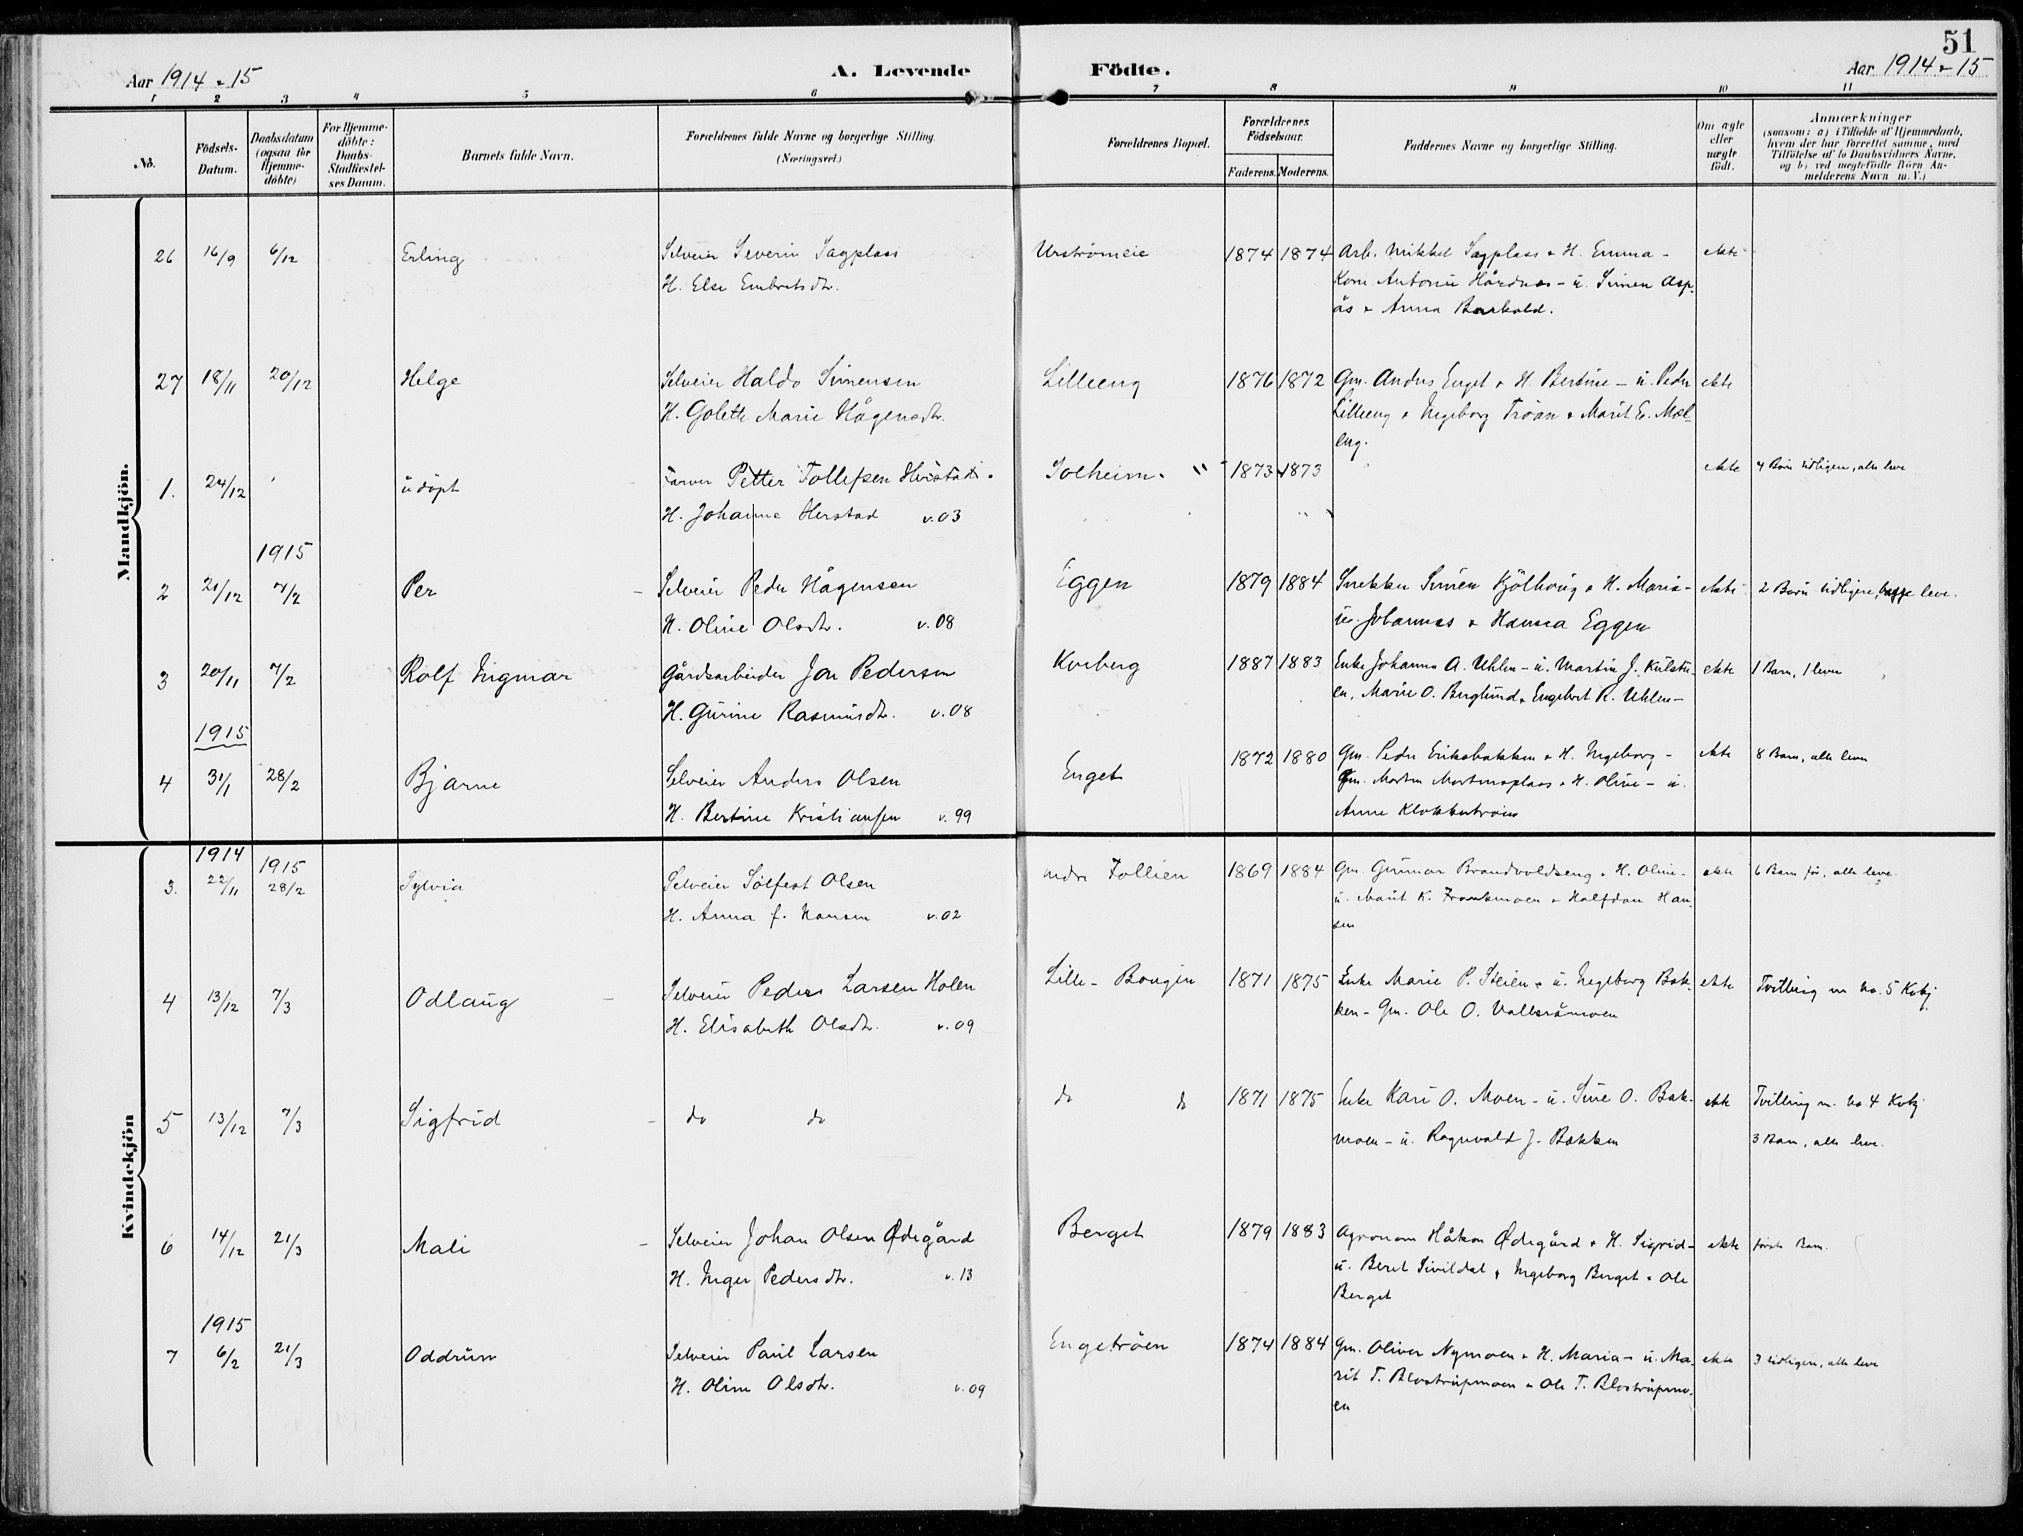 51
Aar 1914-15
A. Levende Födte.
Aar 1914-15
1 2 3 4 5 6 7 8 9 10 11
No.
Födsels-Datum.
Daabsdatum (ogsaa for Hjemme-döbte)
For Hjemme-döbte: Daabs-Stadfæstel-ses Datum.
Barnets fulde Navn.
Forældrenes fulde Navne og borgerlige Stilling. (Næringsvei.)
Forældrenes Bopæl.
Forældrenes Födselsaar.
Faderens. Moderens.
Faddernes Navne og borgerlige Stilling.
Om ægte eller uægte födt.
Anmærkninger
(saasom: a) i Tilfælde af Hjemmedaab, hvem der har forrettet samme, med Tilföielse af to Daabsvidners Navne, og b) ved uægtefödte Börn An-melderens Navn m. V.)
Mandkjön.
26 16/9 6/12 Erling Selveier Severin Sagplass 1874 1874 Arb. Mikkel Sagplass & H. Emma - ekte
H. Else Embretsdtr. Antonie Hårdnes - u. Simen Asp-
ås & Anna
27 18/11 20/12 Helge Selveier Haldo Simensen Lilleeng 1876 1872 Gm. Anders Enget & H. Bertine - u. Peder ekte
H. Goleth Marie Hågensdtr. Lilleeng & Ingeborg Tröan & Marit E. Mæl-
eng.
1. 24/12 udöpt Petter Tollefsen Solheim. 1873 1873 ekte 4 Barn tidligere, alle leve
H. Johanne Herstad v. 03
1915
2 21/12 7/2 Per Selveier Peder Hågensen Eggen 1879 1884 Snekker Simen Kjölhaug & H. Maria - ekte 2 Barn tidligere, begge leve.
H. Oline Olsdtr. v. 08 u. Johannes & Hanna Eggen
3 20/11 7/2 Rolf Ingmar Gårdsarbeider Jon Pedersen Kveberg 1887 1883 Enke Johanna A. Uhlen - u. Martin J. ekte 1 Barn, 1 lever
H. Gurine Rasmusdtr. v. 08 en, Marie O. Berglund & Engebret R. Uhlen -
1915
4 31/1 28/2 Bjarne Selveier Anders Olsen Enget 1872 1880 Gm. Peder Eriksbakken & H. Ingeborg - ekte 8 Barn, alle lever
H. Bertine Kristiansen v. 99 Gm. Morten Mortensplass & H. Oline - u.
Anne Klokkertröen
Kvindekjön
1914 1915
3. 22/11 28/2 Sylvia Selveier Sölfest Olsen 1869 1884 Gm. Gunnar Brandvoldseng & H. Oline - ekte 6 Barn för, alle leve
H. Anna J. Hansen v. 02 u. Marit K. & Halfdan Han-
sen
4 13/12 7/3 Odlaug Selveier Peder Larsen Holen Lille- 1871 1875 Enke Marie P. Steien & u. Ingeborg Bak- ekte Tvilling m No. 5 Kvkj.
H. Elisabeth Olsdtr. v. 09 ken - Gm. Ole O.
5 13/12 7/3 Sigfrid do do do do 1871 1875 Enke Kari O. Moen - u. Sine O. Bak- ekte Tvilling m. No 4 Kvkj
moen - u. Ragnvald J. Bakken 3 Barn, alle leve.
6 14/12 21/3 Mali Selveier Johan Olsen Ødegård Berget 1879 1883 Agronom Håkon Ødegård & H. Sigrid - ekte første Barn.
H. Inger Pedersdtr. v. 13 u. Beret Sivildal & Ingeborg Berget & Ole
Berget
1915
7 6/2 21/3 Oddrun Selveier Paul Larsen Engetröen 1874 1884 Gm. Oliver Nymoen & H. Maria - u. Ma- ekte 3 tidligere, alle leve
H. Oline Olsdtr. v. 09 rit T. Blostrupmoen & Ole T. Blostrupmo-
en